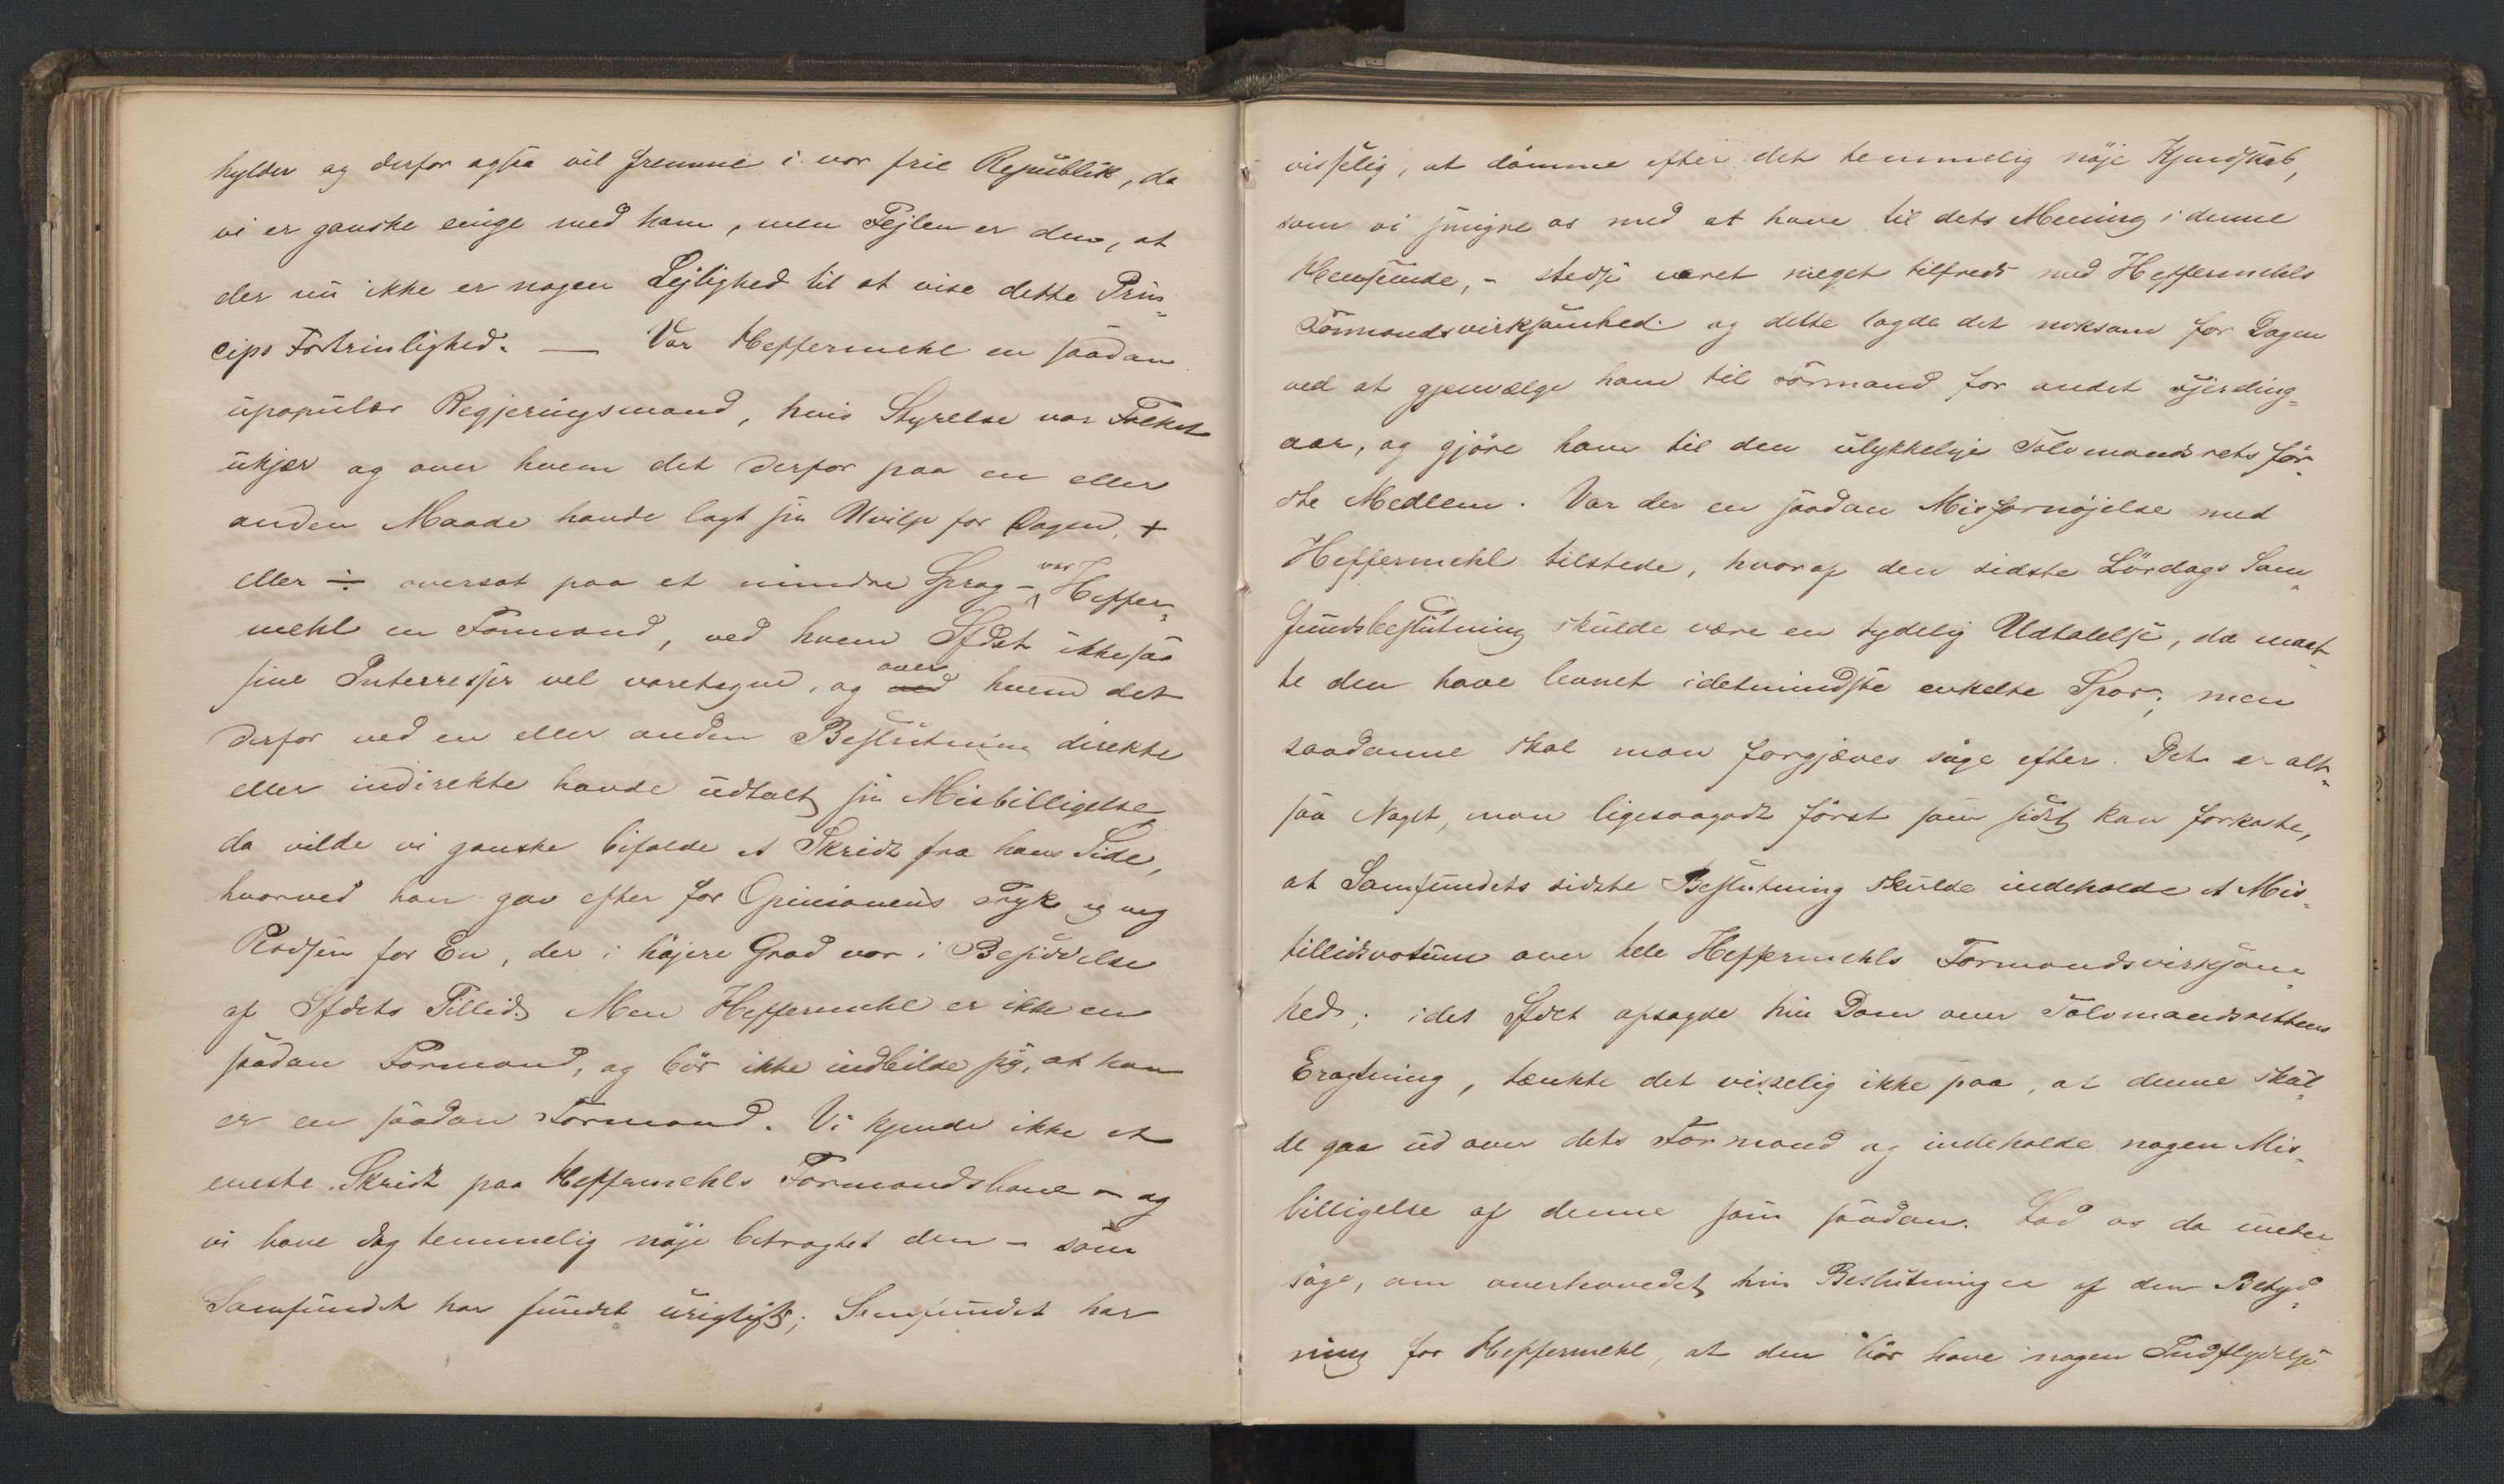 hylder og derfor ogsaa vil fremme i vor frie Republik, da
vi er ganske enige med ham, men Fejlen er den, at
der nu ikke er nogen Lejlighed til at vise dette Prin-
cips Fortrinlighed. — Var Heffermehl en saadan
upopulær Regjeringsmand, hvis Styrelse var Folket
ukjær og over hvem det derfor paa en eller
anden Maade havde lagt sin Uvilje for Dagen, +
eller ÷ oversat paa et mindre Sprog – var Heffer-
mehl en Formand, ved hvem Sfdet ikke saa
sine Interesser vel varetagne, og over hvem det
derfor ved en eller anden Beslutning direkte
eller indirekte havde udtalt sin Misbilligelse,
da vilde vi ganske bifalde et Skridt fra hans Side,
hvorved han gav efter for Opinionens Tryk og veg
Pladsen for En, der i højere Grad var i Besiddelse
af Sfdets Tillid. Men Heffermehl er ikke en
saadan Formand, og bör ikke indbilde sig, at han
er en saadan Formand. Vi kjende ikke et
eneste Skridt paa Heffermehls Formandsbane – og
vi have dog temmelig nöje betragtet den – som
Samfundet har fundet urigtigt; Samfundet har
visselig, at dömme efter det temmelig nöje Kjendskab,
som vi smigre os med at have til dets Mening i denne
Henseende, – stedse været meget tilfreds med Heffermehls
Formandsvirksomhed og dette lagde det noksom for Dagen
ved at gjenvælge ham til Formand for andet Fjerding-
aar, og gjöre ham til den ulykkelige Tolvmandsrets för-
ste Medlem. Var der en saadan Misfornöjelse med
Heffermehl tilstede, hvoraf den sidste Lördags Sam-
fundsbeslutning skulde være en tydelig Udtalelse, da maat-
te den have levnet idetmindste enkelte Spor; men
saadanne skal man forgjæves söge efter. Det er alt-
saa Noget, man ligesaagodt först som sidst kan forkaste,
at Samfundets sidste Beslutning skulde indeholde et Mis-
tillidsvotum over hele Heffermehls Formandsvirksom-
hed; idet Sfdet afsagde hin Dom over Tolvmandsrettens
Eragtning, tænkte det visselig ikke paa, at denne skul-
de gaa ud over dets Formand og indeholde nogen Mis-
billigelse af denne som saadan. Lad os da under-
söge, om overhovedet hin Beslutning er af den Betyd-
ning for Heffermehl, at den bör have nogen Indflydelse